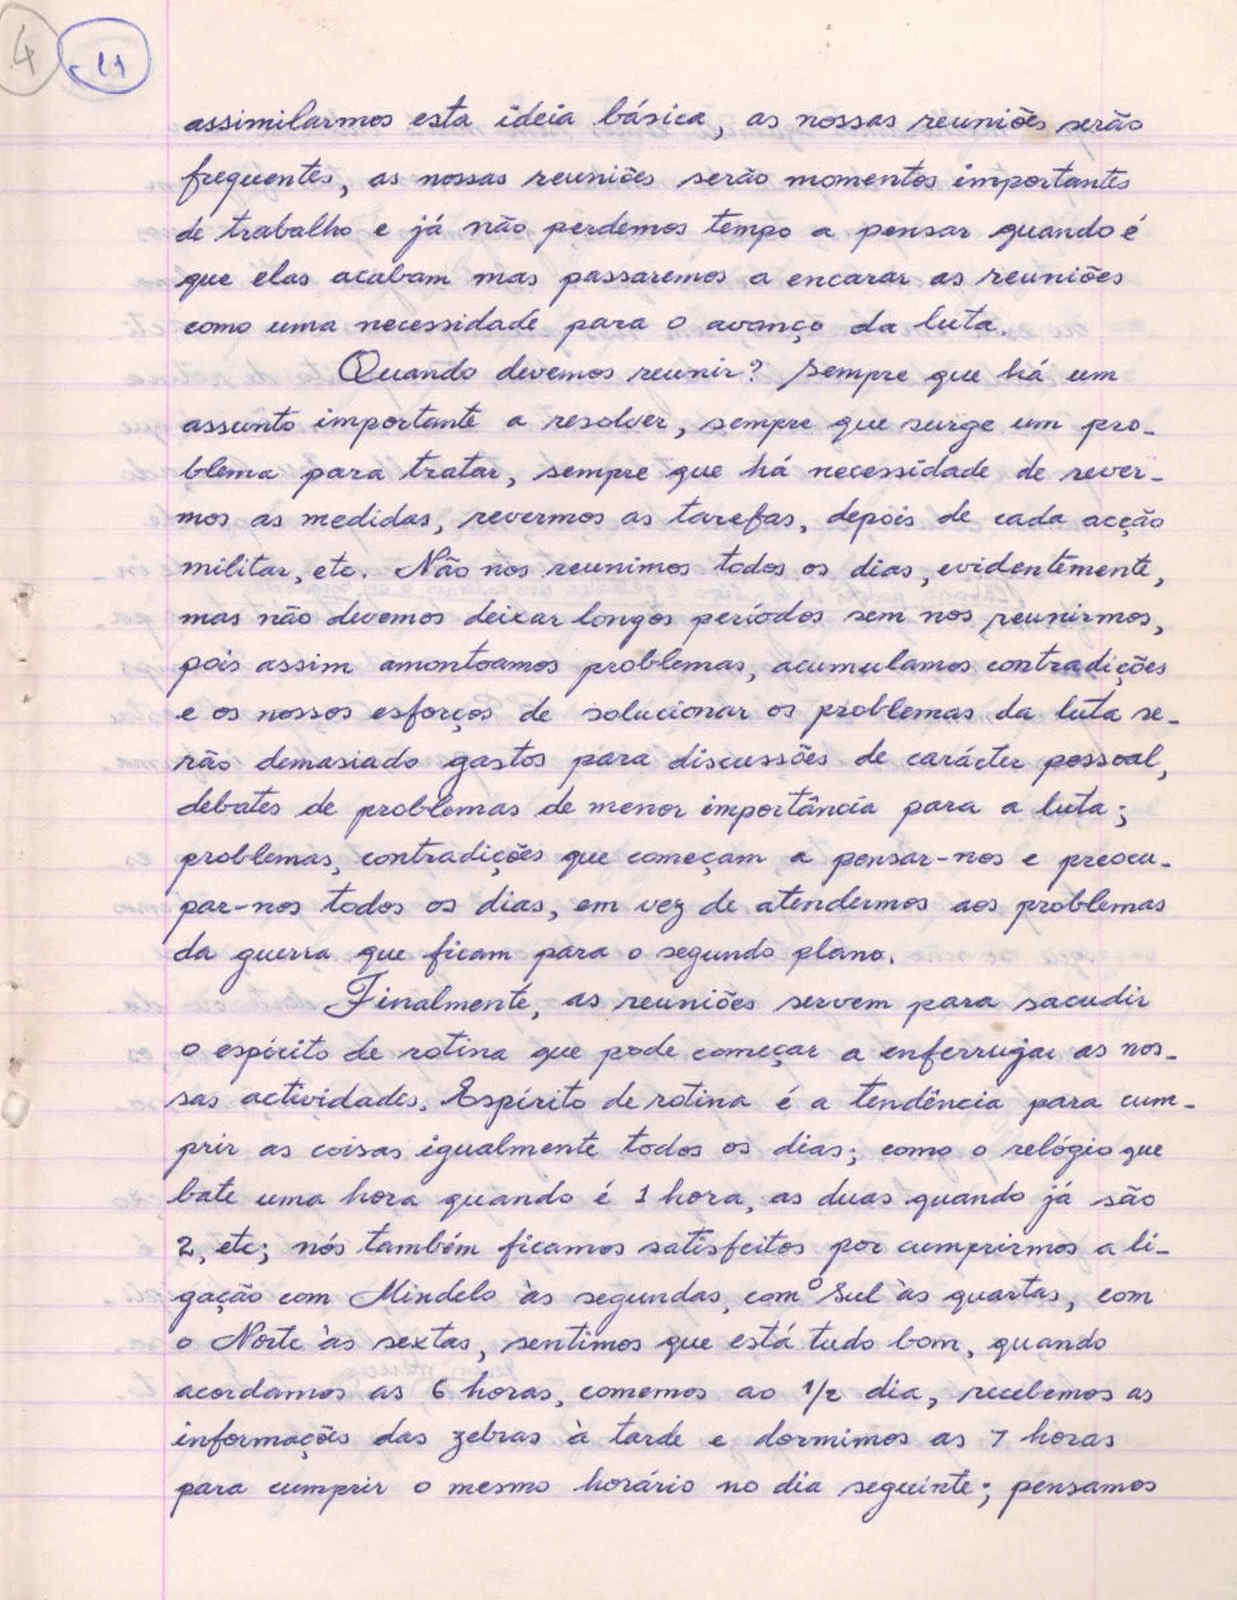 4 -11
assimilarmos esta ideia básica, as nossas reuniões serão
frequentes, as nossas reuniões serão momentos importantes
de trabalho e já não perdemos tempo a pensar quando é
que elas acabam mas passaremos a encarar as reuniões
como uma necessidade para o avanço da luta.
Quando devemos reunir? Sempre que há um
assunto importante a resolver, sempre que surge um pro-
blema para tratar, sempre que há necessidade de rever-
mos as medidas, revermos as tarefas, depois de cada acção
militar, etc. Não nos reunimos todos os dias, evidentemente,
mas não devemos deixar longos períodos sem nos reunirmos,
pois assim amontoamos problemas, acumulamos contradições
e os nossos esforços de solucionar os problemas da luta se-
rão demasiado gastos para discussões de carácter pessoal,
debates de problemas de menor importância para a luta;
problemas, contradições que começam a pensar-nos e preocu-
par-nos todos os dias, em vez de atendermos aos problemas
da guerra que ficam para o segundo plano.
Finalmente, as reuniões servem para sacudir
o espírito de rotina que pode começar a enferrujar as nos-
sas actividades. Espírito de rotina é a tendência para cum-
prir as coisas igualmente todos os dias; como o relógio que
bate uma hora quando é 1 hora, as duas quando já são
2, etc; nós também ficamos satisfeitos por cumprirmos a li-
gação com Mindelo às segundas, com o Sul às quartas, com
o Norte às sextas, sentimos que está tudo bom, quando
acordamos as 6 horas, comemos ao 1/2 dia, recebemos as
informações das zebras à tarde e dormimos as 7 horas
para cumprir o mesmo horário no dia seguinte; pensamos